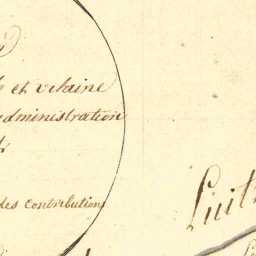 et vilaine
administration
des contributions
Luit